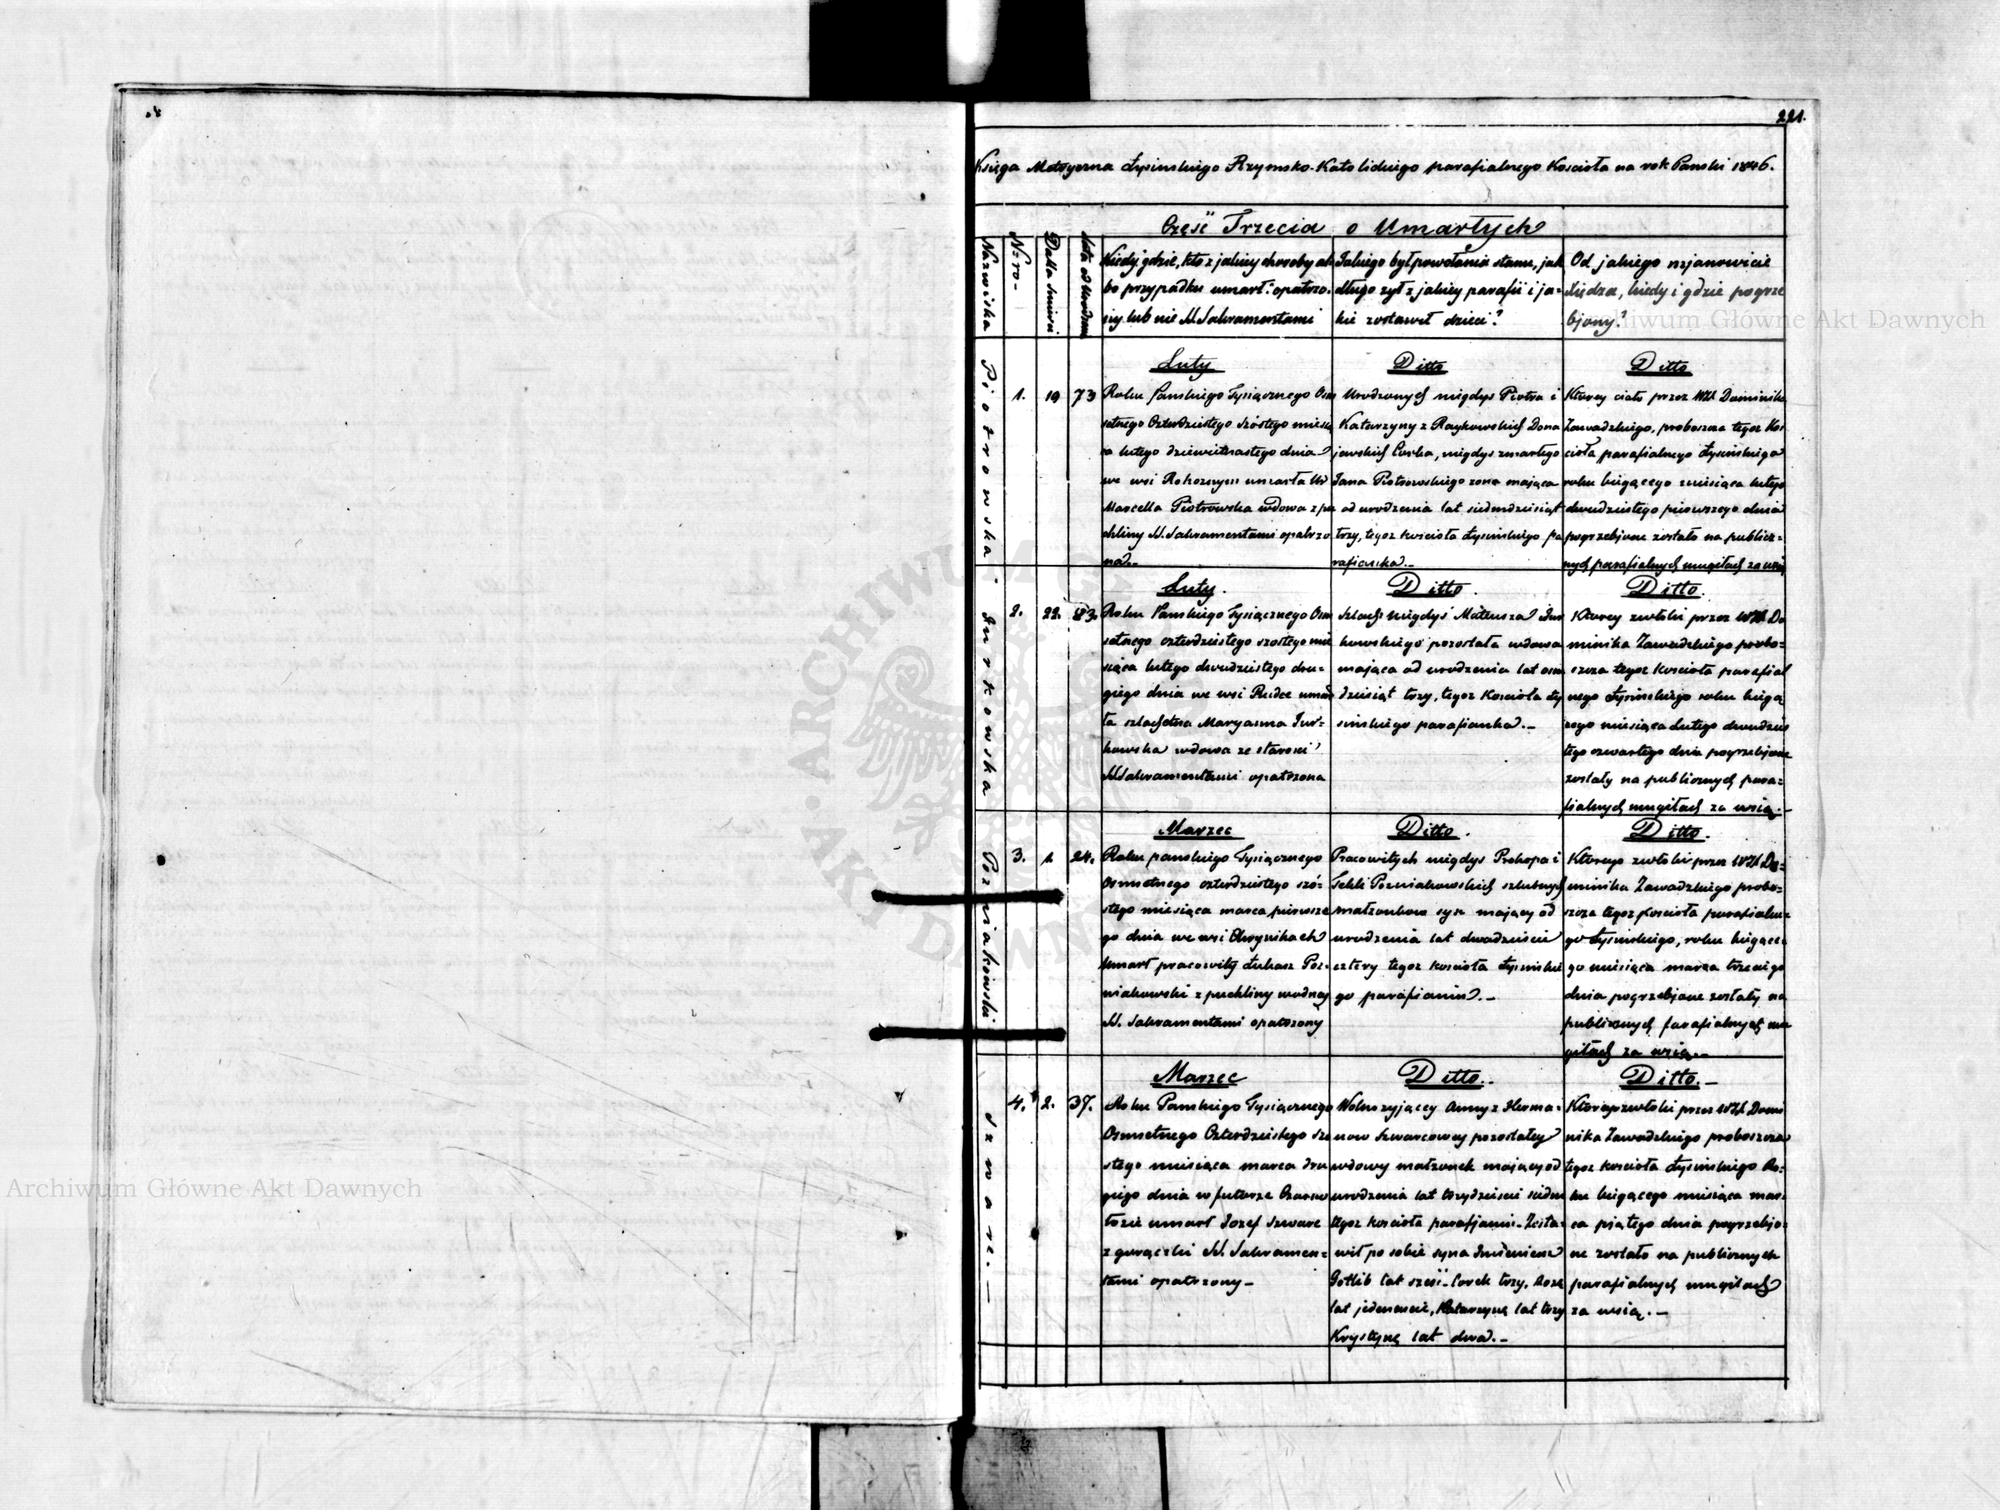 221.
Księga Metryczna Łysinskiego Rzymsko-Katolickiego parafialnego Kościoła na rok Panski 1846.
Część Trzecia o Umarłych
Nazwiska
Nro
Datta śmierci
Kiedy, gdzie, kto z jakiey choroby al-
bo przypadku umarł? opatrzo-
ny lub nie SS. Sakramentami
Jakiego był powołania stanu, jak
długo żył z jakiey parafii i ja-
kie zostawił dzieci?
Od jakiego mianowicie
Xiędza, kiedy i gdzie pogrze
biony?
Piotrowska
1.
19
73
Luty
Roku Panskiego Tysiącznego Osm
setnego Czterdziestego Szóstego miesią
ca lutego dziewiętnastego dnia
we wsi Rohoznym umarła
Marcella Piotrowska wdowa z pu
chliny SS. Sakramentami opatrzo
na.-
Ditto
Urodzonych niegdys Piotra i
Katarzyny z Raykowskich Dona
jewskich Corka, niegdys zmarłego
Jana Piotrowskiego zona mająca
od urodzenia lat siedmdziesiąt
trzy, tegoz kościoła Łysinskiego pa
rafianka.-
Ditto
Ktorey ciało przez WX. Dominika
Zawadzkiego, proboszcza tegoz Koś
cioła parafialnego Łysinskiego
roku biegącego miesiąca lutego
dwudziestego pierwszego dnia
pogrzebione zostało na publicz-
nych parafialnych mogiłach za wsią
Jurkowska
2.
22.
83.
Luty.
Roku Panskiego Tysiącznego Osm
setnego czterdziestego szostego mie
siąca lutego dwudziestego dru-
giego dnia we wsi Rudce umar
ła szlachetna Maryanna Jur-
kowska wdowa ze starosci
SS. Sakramentami opatrzona
Ditto.
Szlach: niegdyś Mateusza Jur
kowskiego pozostała wdowa
mająca od urodzenia lat osm
dziesiąt trzy, tegoz Kościoła Ły
sinskiego parafianka.-
Ditto.
Ktorey zwłoki przez WX. Do
minika Zawadzkiego probo-
szcza tegoz kościoła parafial
nego Łysinskiego roku biegą
cego miesiąca Lutego dwudzies
tego czwartego dnia pogrzebione
zostały na publicznych para-
fialnych mogiłach za wsią.-
Pozniakowski
3.
1.
24.
Marzec
Roku panskiego Tysiącznego
Osmsetnego czterdziestego szó-
stego miesiąca marca pierwsze
go dnia we wsi Ohrynikach
Umarł pracowity Łukasz Poz-
niakowski z puchliny wodney
SS. Sakramentami opatrzony
Ditto.
Pracowitych niegdys Prokopa i
Tekli Pozniakowskich szlubnych
małzonkow syn mający od
urodzenia lat dwadzieścia
cztery tegoz kościoła Łysinskie
go parafianin.-
Ditto.
Ktorego zwłoki przez WX. Do-
minika Zawadzkiego probo-
szcza tegoz Kościoła parafialne-
go Łysinskiego, roku biegące-
go miesiąca marca trzeciego
dnia pogrzebione zostały na
publicznych parafialnych mo
giłach za wsią.-
Szwarc.-
4.
2.
37.
Marzec
Roku Panskiego Tysiącznego
Osmsetnego Czterdziestego Szo
stego miesiąca marca dru
giego dnia w futorze Czarno
łozie umarł Jozef Szwarc
z gorączki SS. Sakramen-
tami opatrzony-
Ditto.-
Wolnozyjącey Anny z Herma-
now Szwarcowey pozostałey
wdowy małzonek mający od
urodzenia lat trzydzieści siedm
tegoz kościoła parafjanin. Zosta-
wił po sobie syna Imieniem
Gotlib lat sześć. Corek trzy, Rozę
lat jedenaście, Katarzynę lat trzy
Krystynę lat dwa.-
Ditto.-
Ktorego zwłoki przez WX. Domi
nika Zawadzkiego proboszcza
tegoz kościoła Łysinskiego Ro-
ku biegącego miesiąca mar-
ca piątego dnia pogrzebio-
ne zostało na publicznych
parafialnych mogiłach
za wsią.-
Archiwum Główne Akt Dawnych
Archiwum Główne Akt Dawnych